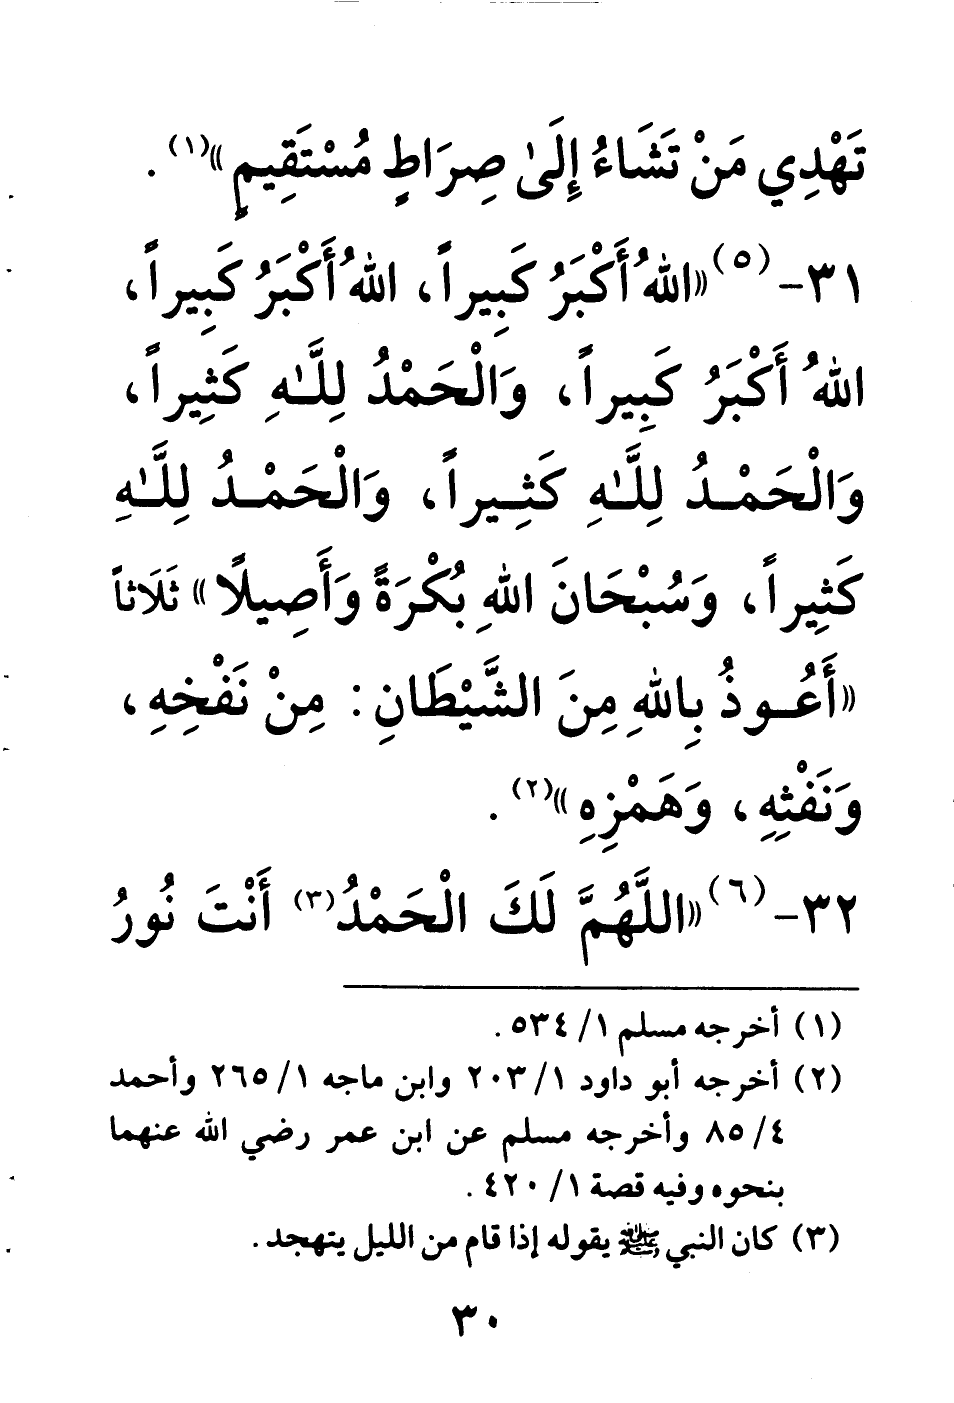 تَهْدِي مَنْ تَشَاءُ إِلَىٰ صِرَاطٍ مُسْتَقِيمٍ»(١).
٣١-(٥) «اللهُ أَكْبَرُ كَبِيراً، اللهُ أَكْبَرُ كَبِيراً،
اللهُ أَكْبَرُ كَبِيراً، وَالْحَمْدُ لِلَّـٰهِ كَثِيراً،
وَالْحَمْـدُ لِلَّـٰهِ كَثِـيراً، وَالْحَمْـدُ لِلَّـٰهِ
كَثِيراً، وَسُبْحَانَ اللهِ بُكْرَةً وَأَصِيلًا» ثَلَاثاً
«أَعُـوذُ بِاللهِ مِنَ الشَّيْطَانِ: مِنْ نَفْخِهِ،
وَنَفْثِهِ، وَهَمْزِهِ»(٢).
٣٢-(٦) «اللَّهُمَّ لَكَ الْحَمْدُ(٣) أَنْتَ نُورُ
(١) أخرجه مسلم ١/ ٥٣٤.
(٢) أخرجه أبو داود ١/ ٢٠٣ وابن ماجه ١/ ٢٦٥ وأحمد
٤/ ٨٥ وأخرجه مسلم عن ابن عمر رضي الله عنهما
بنحوه وفيه قصة ١/ ٤٢٠.
(٣) كان النبي ﷺ يقوله إذا قام من الليل يتهجد.
٣٠